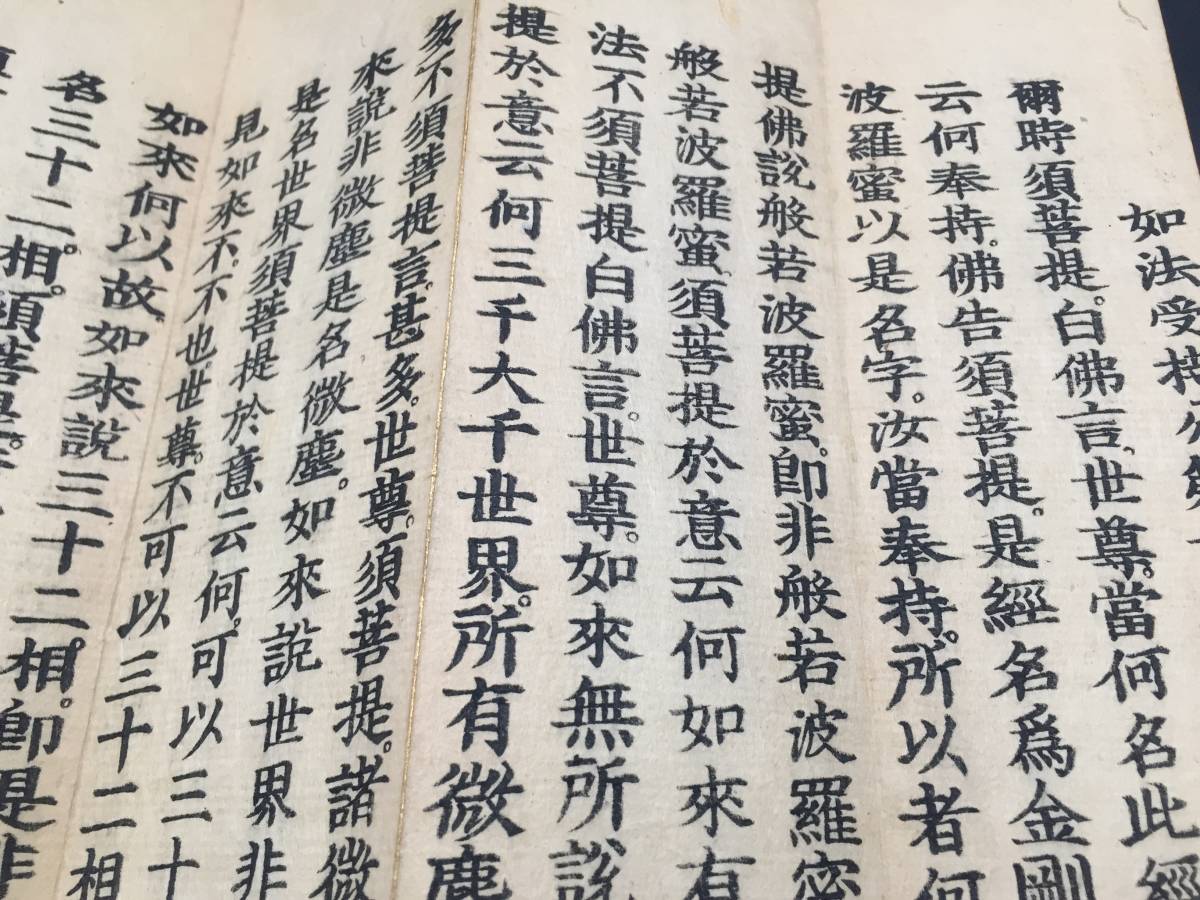 如法受持分第十
爾時須菩提。白佛言、世尊。當何名此經
云何奉持。佛告須菩提。是經名爲金剛
波羅蜜以是名字。汝當奉持。所以者何
提佛說般若波羅蜜。卽非般若波羅蜜
般若波羅蜜。須菩提於意云何如來有
法不須菩提白佛言。世尊。如來無所說
提於意云何三千大千世界。所有微塵
多不須菩提言。甚多。世尊。須菩提。諸微
來說非微塵是名微塵。如來說世界非
是名世界須菩提於意云何。可以三十
見如來不。不也世尊。不可以三十二相
如來何以故。如來說三十二相
名三十二相。須菩提。